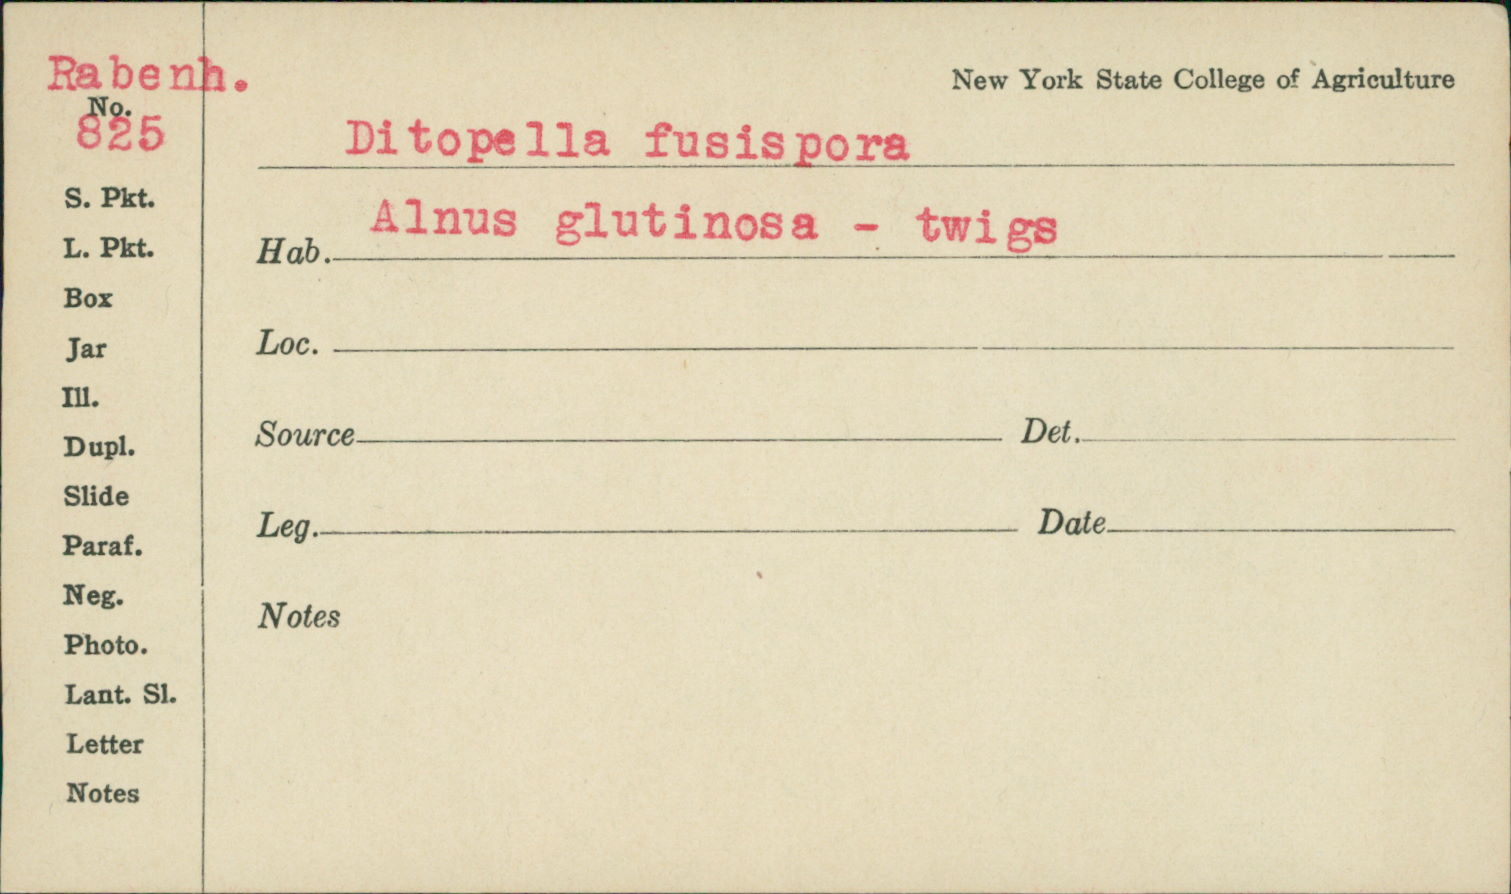 Rabenh.
No.
825
New York State College of Agriculture
Ditopella fusispora
Alnus glutinosa - twigs
Hab.
Loc.
Source Det.
Leg. Date
Notes
S. Pkt.
L. Pkt.
Box
Jar
Ill.
Dupl.
Slide
Paraf.
Neg.
Photo.
Lant. Sl.
Letter
Notes